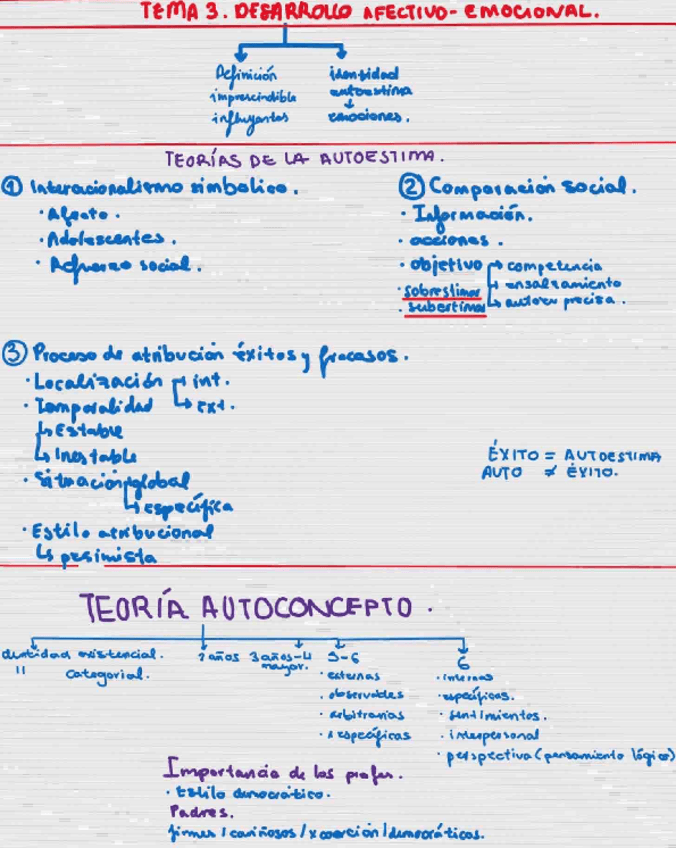 TEMA 3. DESARROLLO AFECTIVO-EMOCIONAL.
Definición
imprescindible
influyentes
identidad
autoestima
↓
emociones.
TEORÍAS DE LA AUTOESTIMA.
① Interacionalismo simbolico.
· Afecto.
· Adolescentes.
· Refuerzo social.
② Comparación social.
· Información.
· acciones.
· objetivo → competencia
→ ensalzamiento
→ autoev precisa.
· sobrestimar
· subestimar
③ Proceso de atribución éxitos y fracasos.
· Localización → int.
→ ext.
· Temporalidad
↳ Estable
↳ Inestable
· Situación global
↳ específica
· Estilo atribucional
↳ pesimista
ÉXITO = AUTOESTIMA
AUTO ≠ ÉXITO.
TEORÍA AUTOCONCEPTO.
identidad existencial.
" Categorial.
2 años
3 años-4
mayor.
5-6
· externas
· observables
· arbitrarias
· específicas
6
· internas
· específicas.
· sentimientos.
· interpersonal
· perspectiva (pensamiento lógico)
Importancia de los profes.
· Estilo democrático.
Padres.
firmes / cariñosos / x coerción / democráticos.